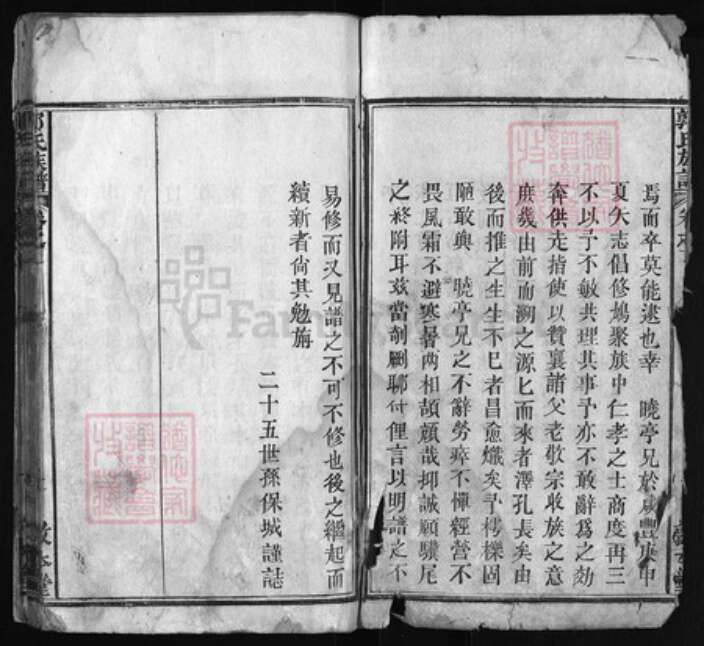 焉而卒莫能逮也幸　曉亭兄於咸豐庚申
夏矢志倡修鳩聚族中仁孝之士商度再三
不以予不敏共理其事予亦不敢辭爲之効
奔供走指使以贊襄諸父老敬宗收族之意
庶幾由前而溯之源匕而來者澤孔長矣由
後而推之生生不已者昌愈熾矣予樗櫟固
陋敢與　曉亭兄之不辭勞瘁不憚經營不
畏風霜不避寒暑两相頡頏哉抑誠願驥尾
之終附耳兹當剞劂聊付俚言以明譜之不
易修而又見譜之不可不修也後之繼起而
續新者尙其勉旃
二十五世孫保城謹誌
郭氏族譜
氏族譜
FamilySearch